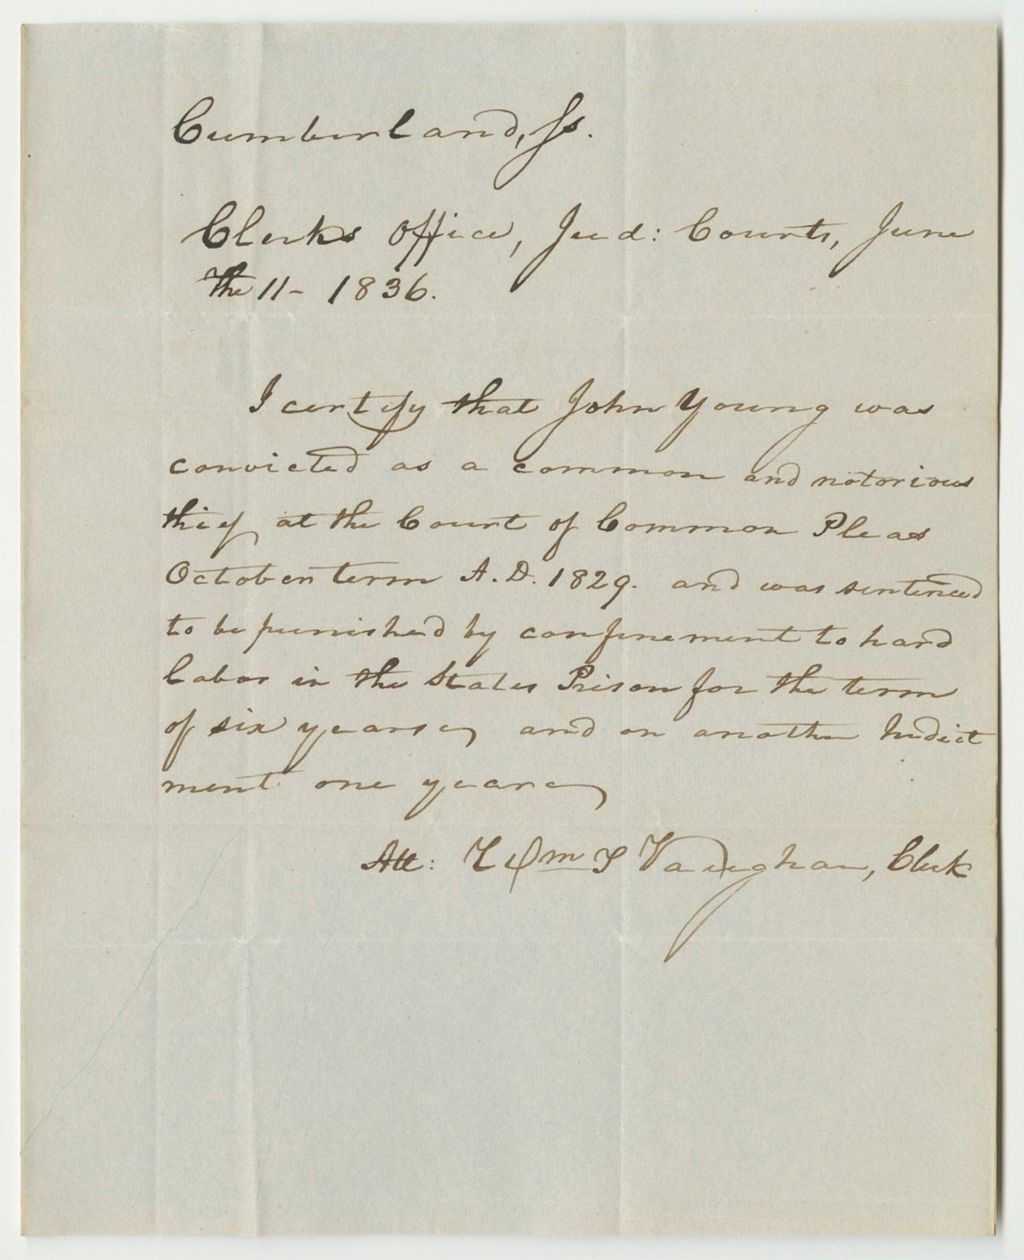 Cumberland, Ss.
Clerks Office, Jud: Courts, June
the 11 - 1836.
I certify that John Young was
convicted as a common and notorious
thief at the Court of Common Pleas
October term A.D. 1829. and was sentenced
to be punished by confinement to hard
labor in the States Prison for the term
of six years, and on another Indict
ment one year
Att: Wm T Vaughan, Clerk